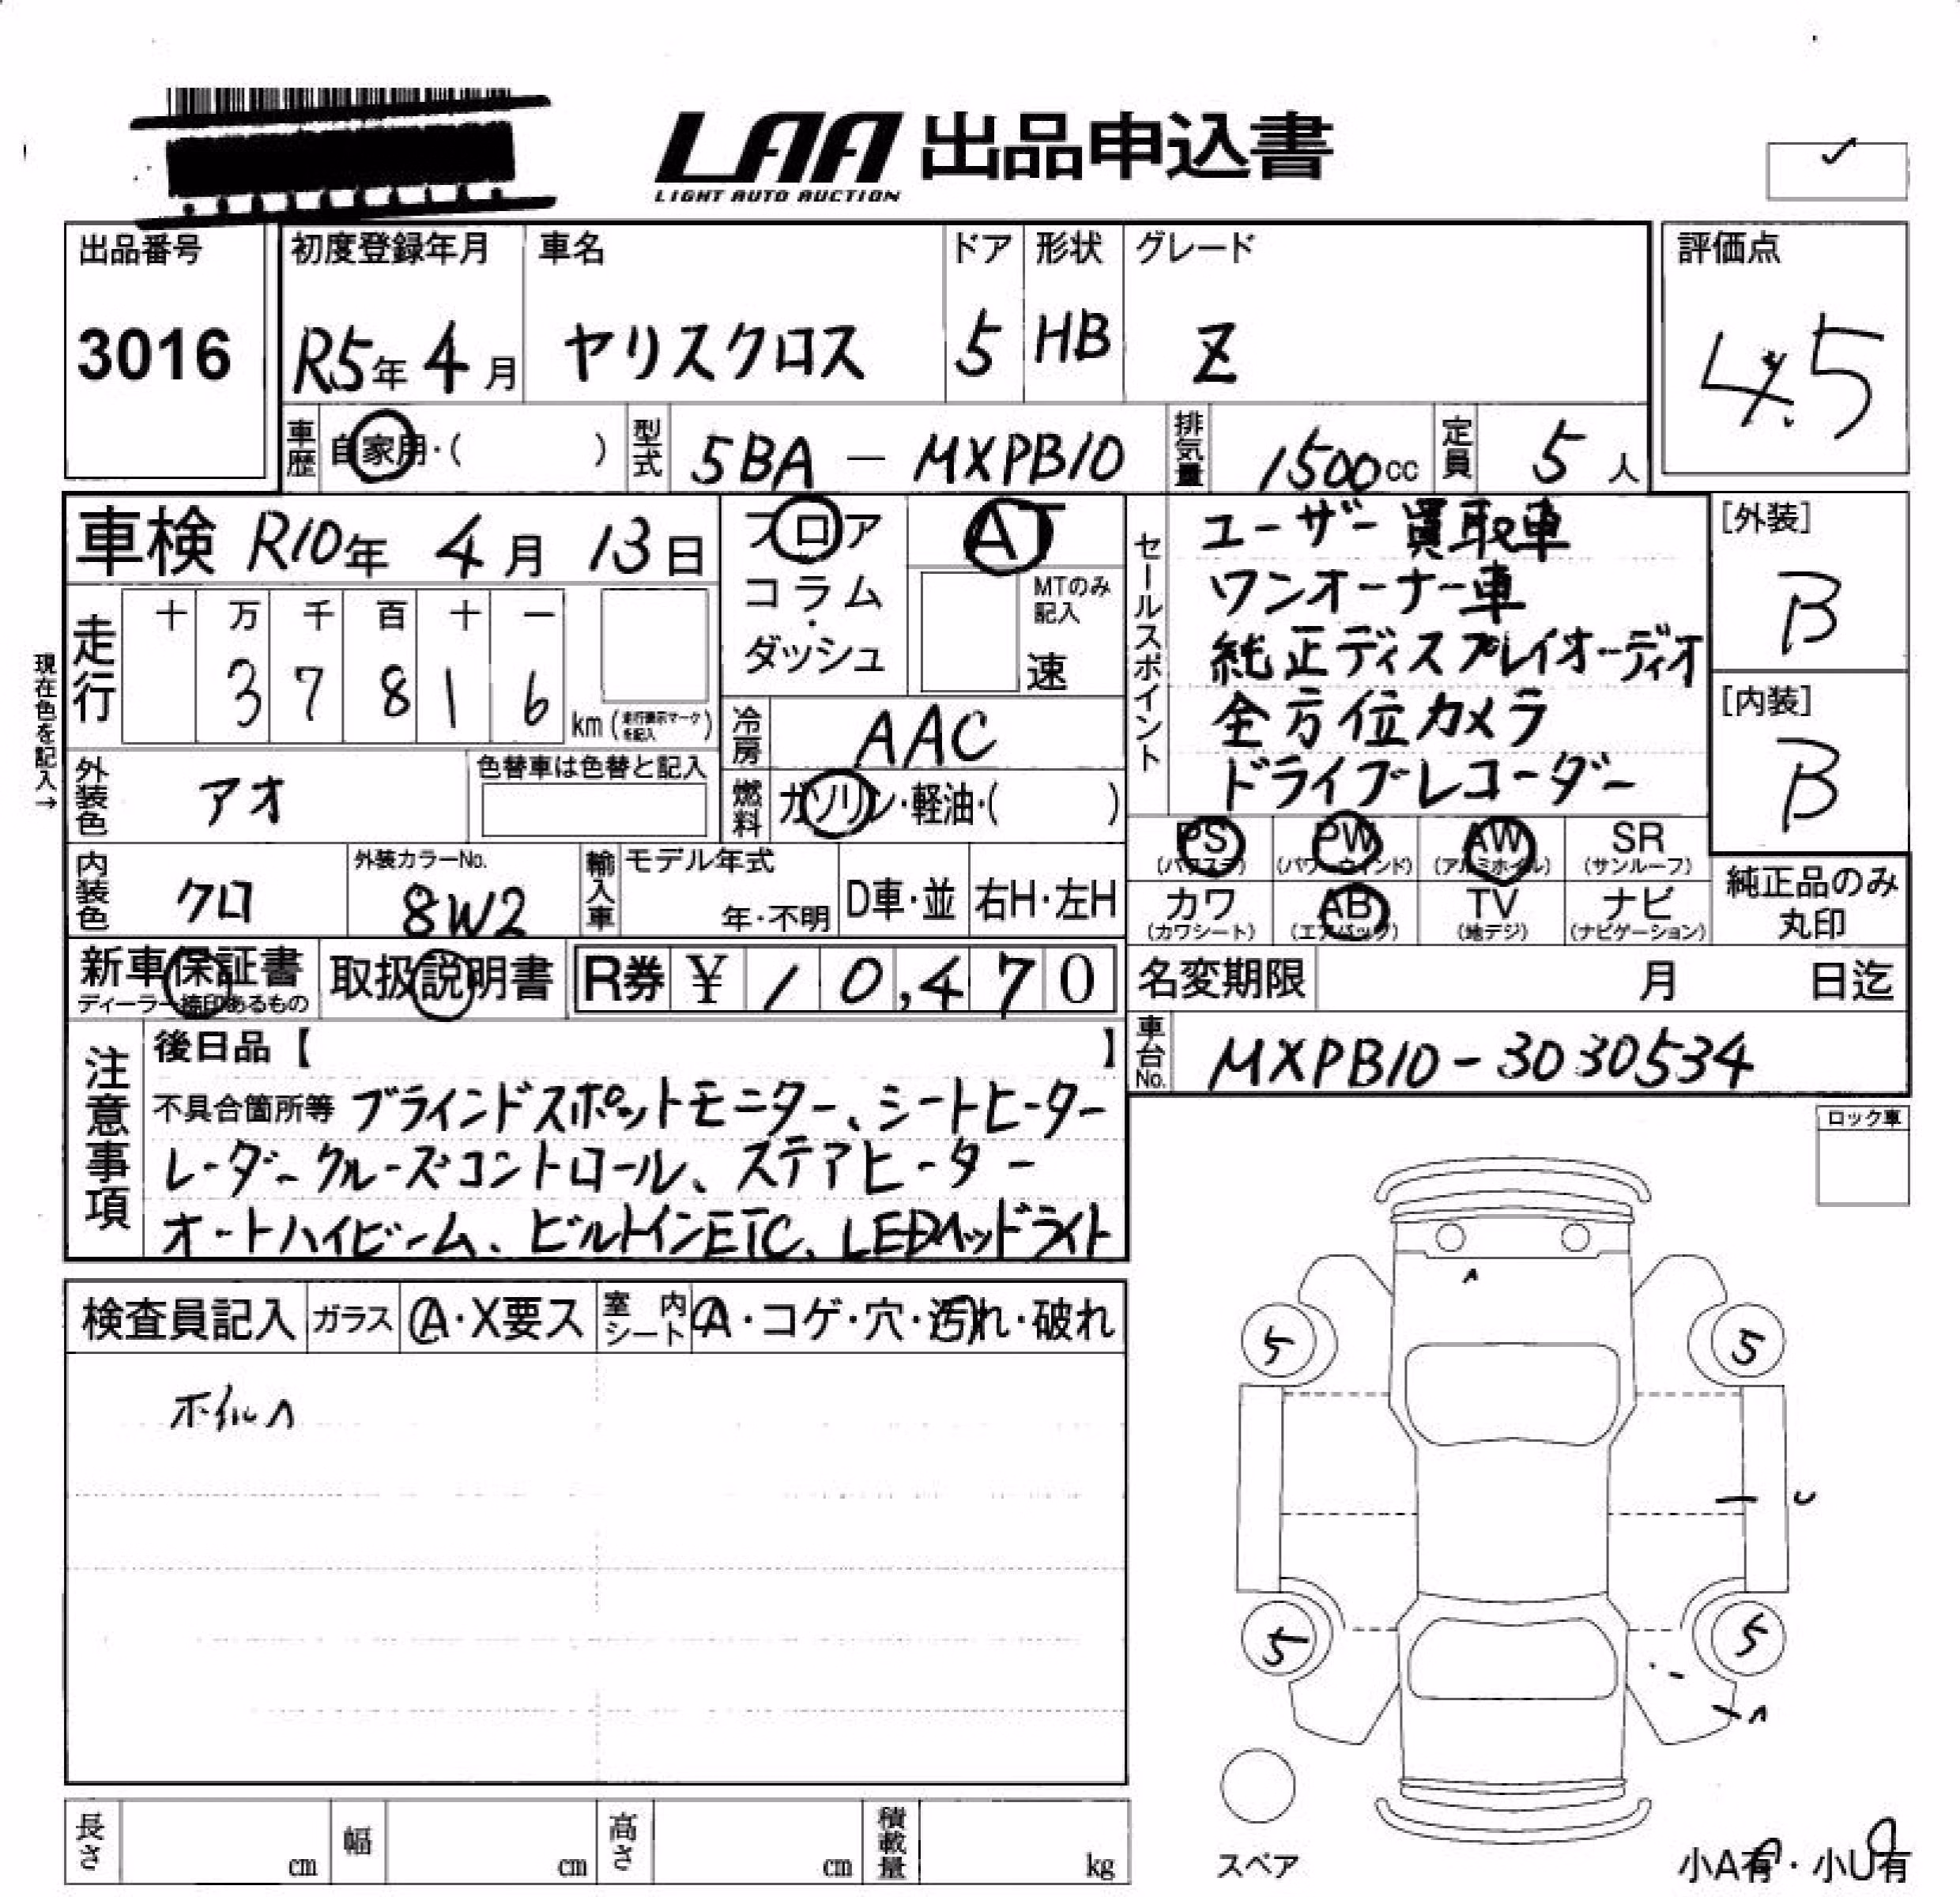 LAA 出品申込書
LIGHT AUTO AUCTION
出品番号 初度登録年月 車名 ドア 形状 グレード 評価点
3016 R5年 4月 ヤリスクロス 5 HB Z 4.5
車歴 自家用・( ) 型式 5BA - MXPB10 排気量 1500cc 定員 5人
車検 R10年 4月 13日 フロア AT
コラム・ダッシュ MTのみ記入 速
現在色を記入→
走行 十 万 千 百 十 一
3 7 8 1 6 km (走行表示マークを記入)
冷房 AAC
外装色 アオ 色替車は色替と記入
燃料 ガソリン・軽油・( )
内装色 クロ 外装カラーNo. 8W2 輸入車 モデル年式 年・不明 D車・並 右H・左H
セールスポイント
ユーザー買取車
ワンオーナー車
純正ディスプレイオーディオ
全方位カメラ
ドライブレコーダー
[外装]
B
[内装]
B
PS PW AW SR
(パワステ) (パワーウィンド) (アルミホイル) (サンルーフ)
カワ AB TV ナビ
(カワシート) (エアバック) (地デジ) (ナビゲーション)
純正品のみ
丸印
新車保証書 取扱説明書 R券 ¥ 10,470
ディーラー捺印あるもの
名変期限 月 日迄
車台No. MXPB10-3030534
注意事項
後日品【 】
不具合箇所等 ブラインドスポットモニター、シートヒーター
レーダークルーズコントロール、ステアヒーター
オートハイビーム、ビルトインETC、LEDヘッドライト
ロック車
検査員記入 ガラス A・X要ス 室内シート A・コゲ・穴・汚れ・破れ
ホイル A
A
5 5
U
5 5
A
スペア
小A有・小U有
長さ cm 幅 cm 高さ cm 積載量 kg